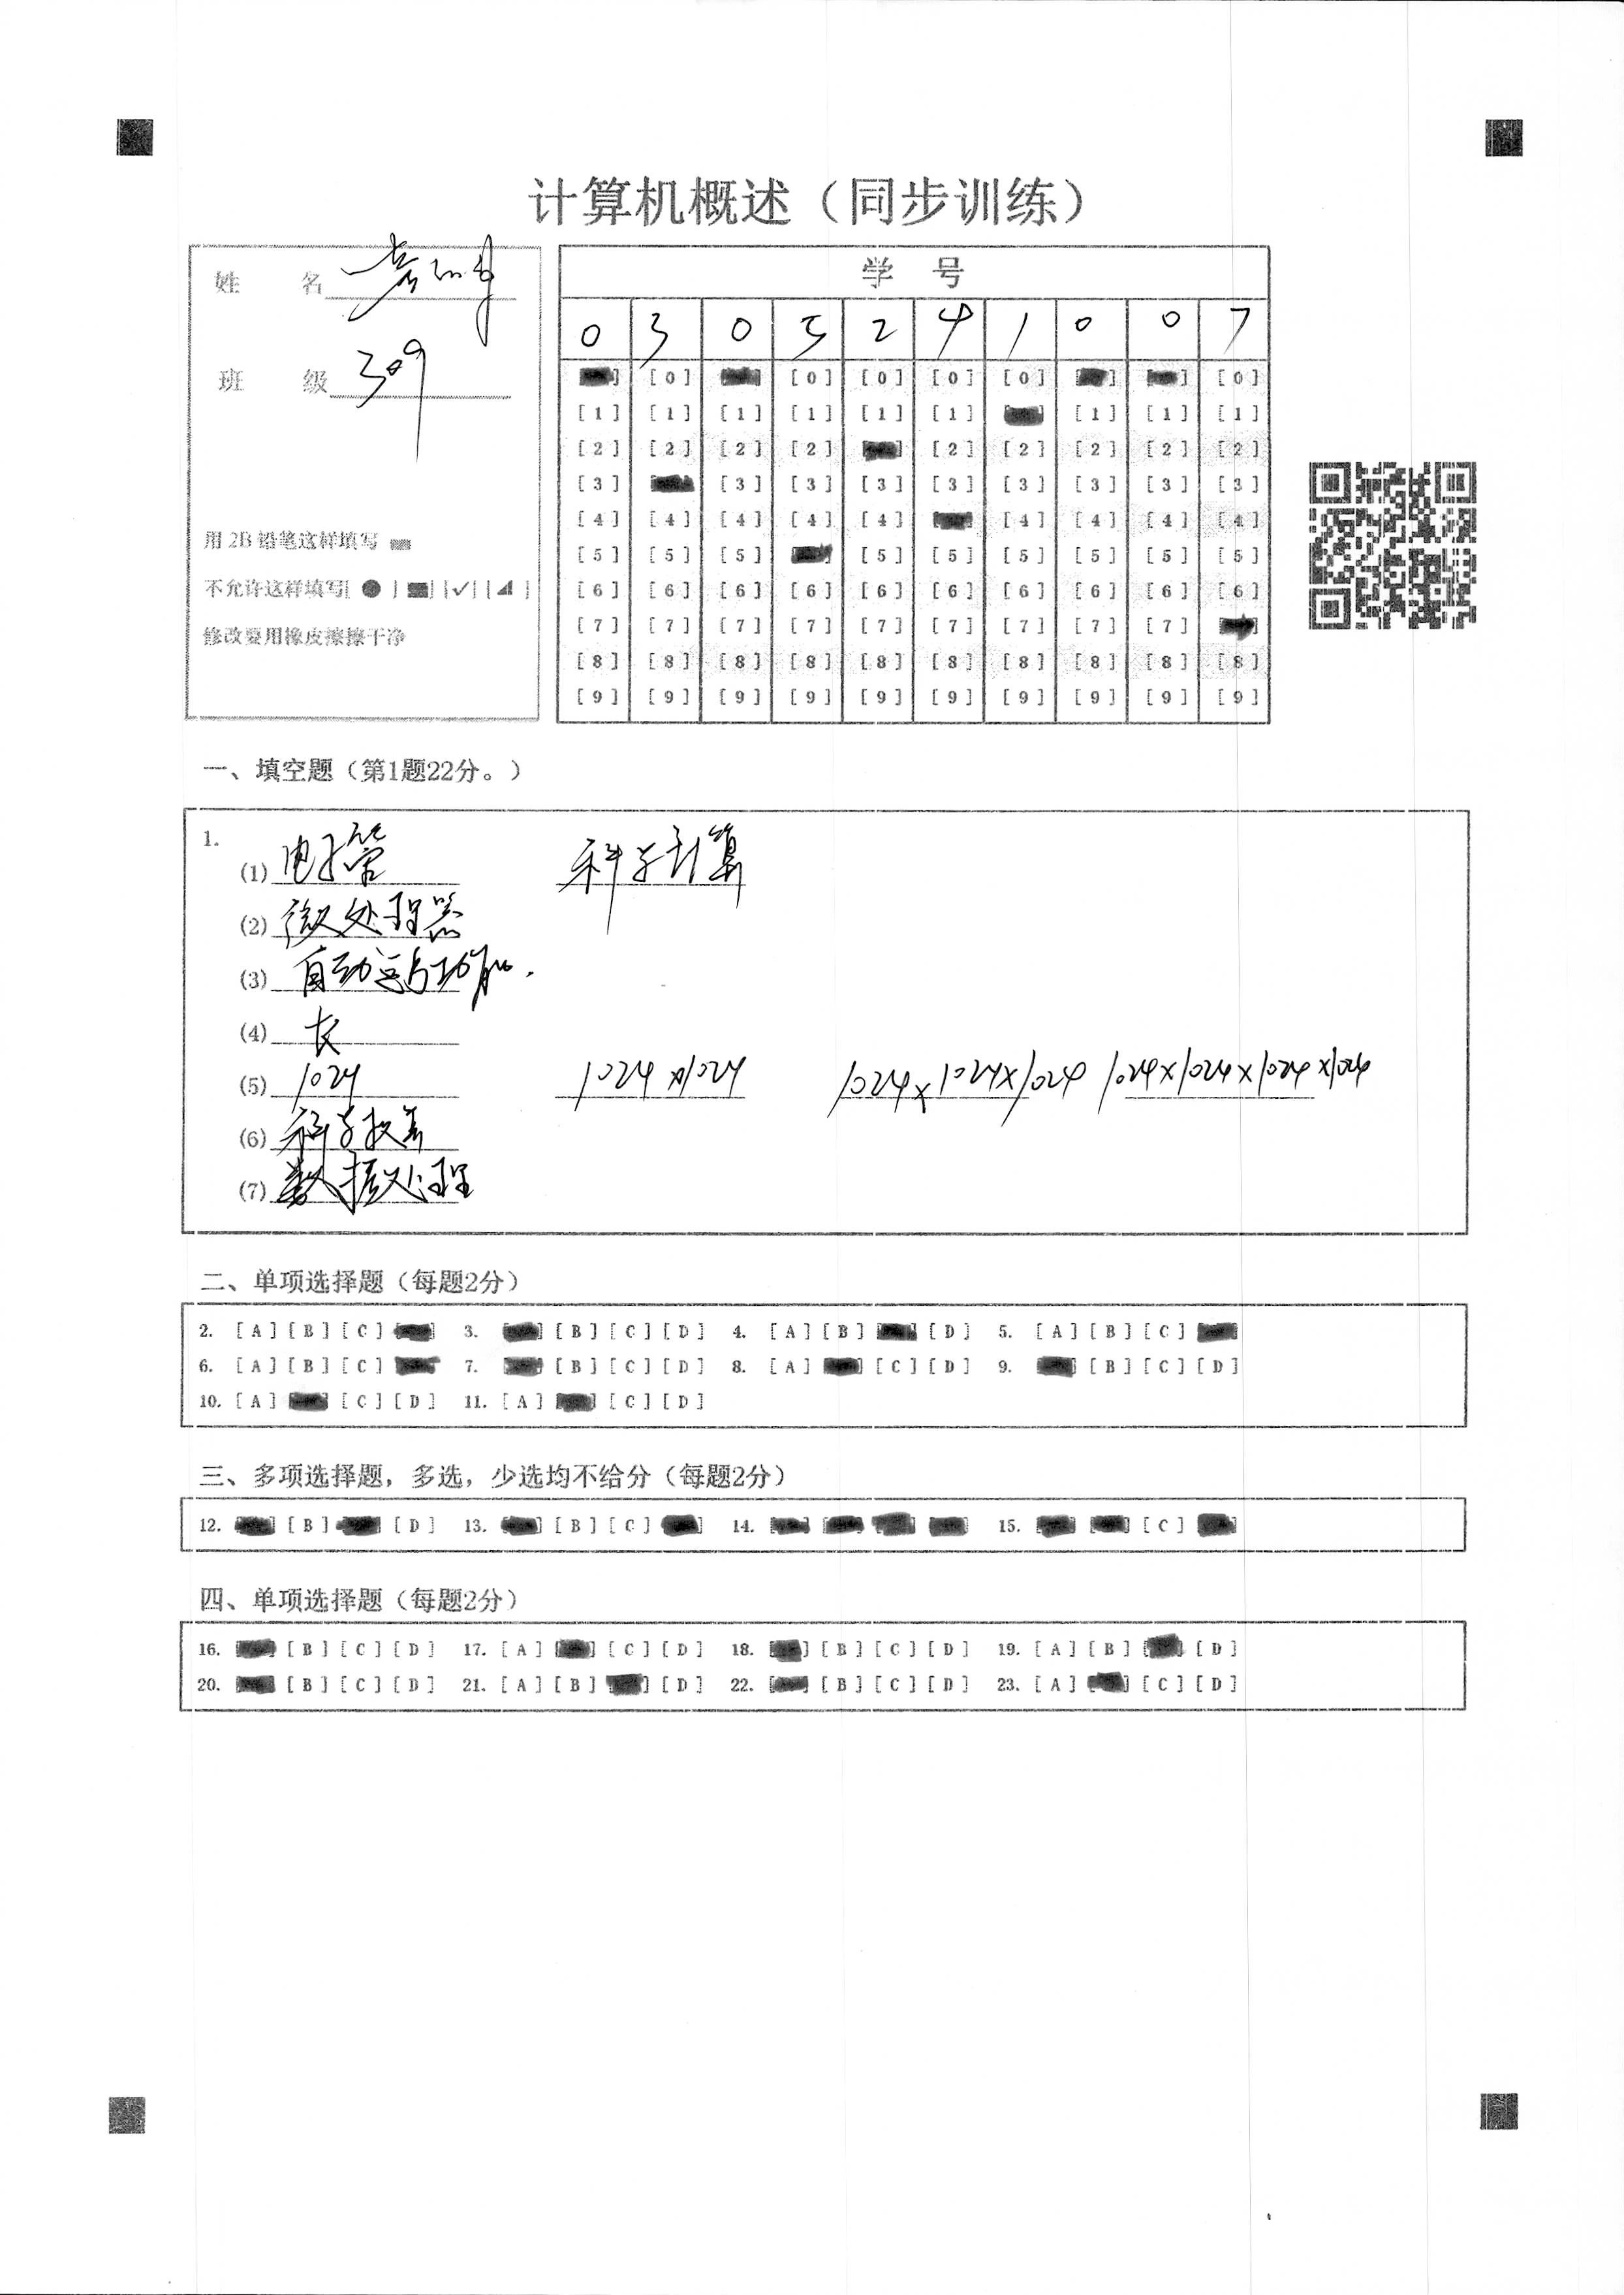 计算机概述（同步训练）
姓 名
班 级 309
用 2B 铅笔这样填写
不允许这样填写[ ● ] [■] [✓] [◢ ]
修改要用橡皮擦擦干净
学 号
0 3 0 5 2 4 1 0 0 7
[0] [0] [0] [0] [0] [0]
[1] [1] [1] [1] [1] [1] [1] [1] [1]
[2] [2] [2] [2] [2] [2] [2] [2] [2]
[3] [3] [3] [3] [3] [3] [3] [3] [3]
[4] [4] [4] [4] [4] [4] [4] [4] [4]
[5] [5] [5] [5] [5] [5] [5] [5] [5]
[6] [6] [6] [6] [6] [6] [6] [6] [6] [6]
[7] [7] [7] [7] [7] [7] [7] [7] [7]
[8] [8] [8] [8] [8] [8] [8] [8] [8] [8]
[9] [9] [9] [9] [9] [9] [9] [9] [9] [9]
一、填空题（第1题22分。）
1.
(1) 电子管 科学计算
(2) 微处理器
(3) 自动运行功能.
(4) 长
(5) 1024 1024×1024 1024×1024×1024 1024×1024×1024×1024
(6) 科学计算
(7) 数据处理
二、单项选择题（每题2分）
2. [A] [B] [C] 3. [B] [C] [D] 4. [A] [B] [D] 5. [A] [B] [C]
6. [A] [B] [C] 7. [B] [C] [D] 8. [A] [C] [D] 9. [B] [C] [D]
10. [A] [C] [D] 11. [A] [C] [D]
三、多项选择题，多选，少选均不给分（每题2分）
12. [B] [D] 13. [B] [C] 14. 15. [C]
四、单项选择题（每题2分）
16. [B] [C] [D] 17. [A] [C] [D] 18. [B] [C] [D] 19. [A] [B] [D]
20. [B] [C] [D] 21. [A] [B] [D] 22. [B] [C] [D] 23. [A] [C] [D]